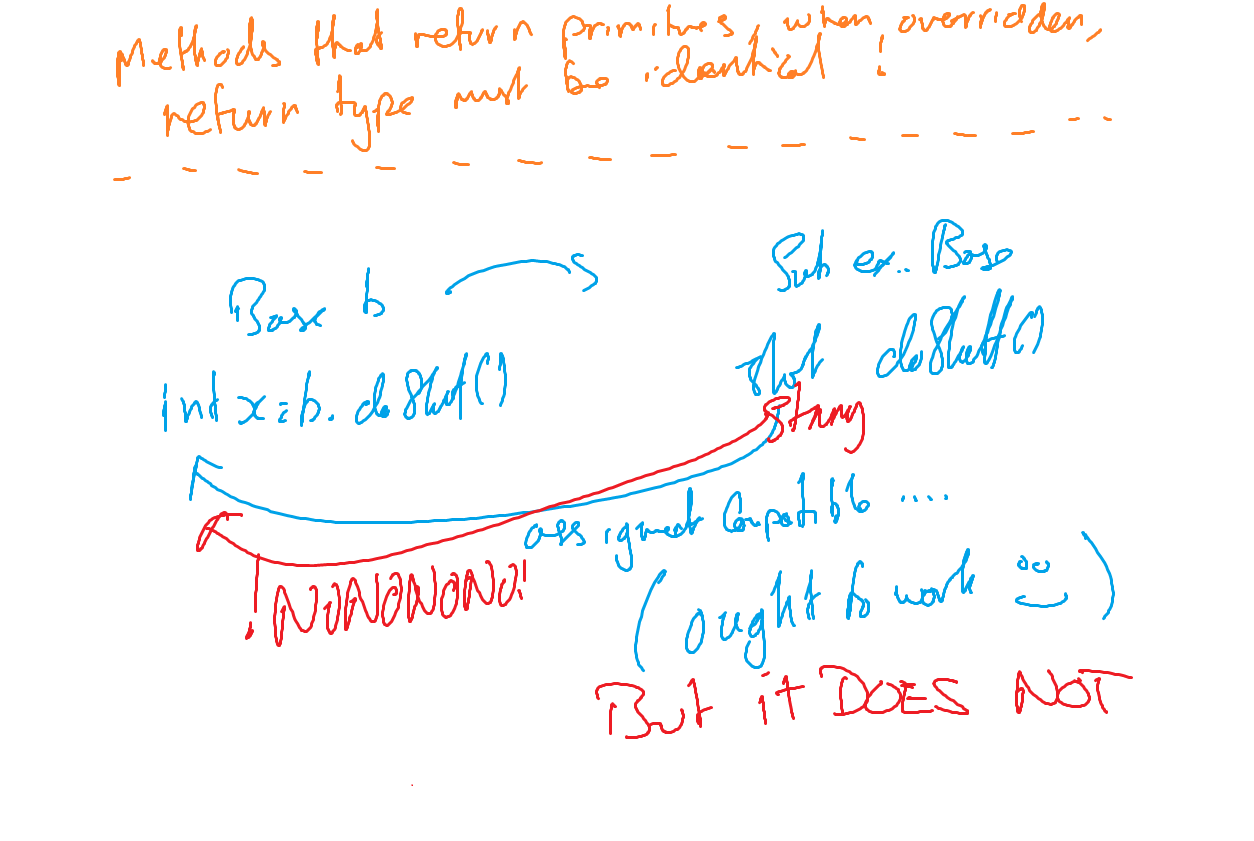 Methods that return primitives, when overridden,
return type must be identical !
Base b
Sub ex.. Base
int x = b. doStuf()
short doStuff()
String
assignment Compatible ....
! NONONONO!
(ought to work )
But it DOES NOT